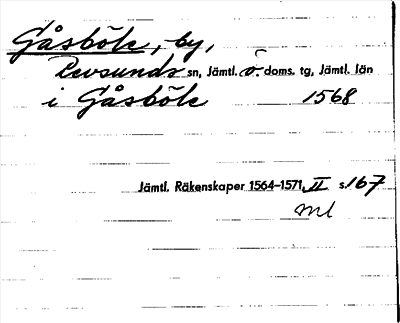 Gåsböle, by,
Revsunds sn, Jämtl. ö. doms. tg, Jämtl. län
i Gåsböle 1568
Jämtl. Räkenskaper 1564–1571, II s. 167
ml